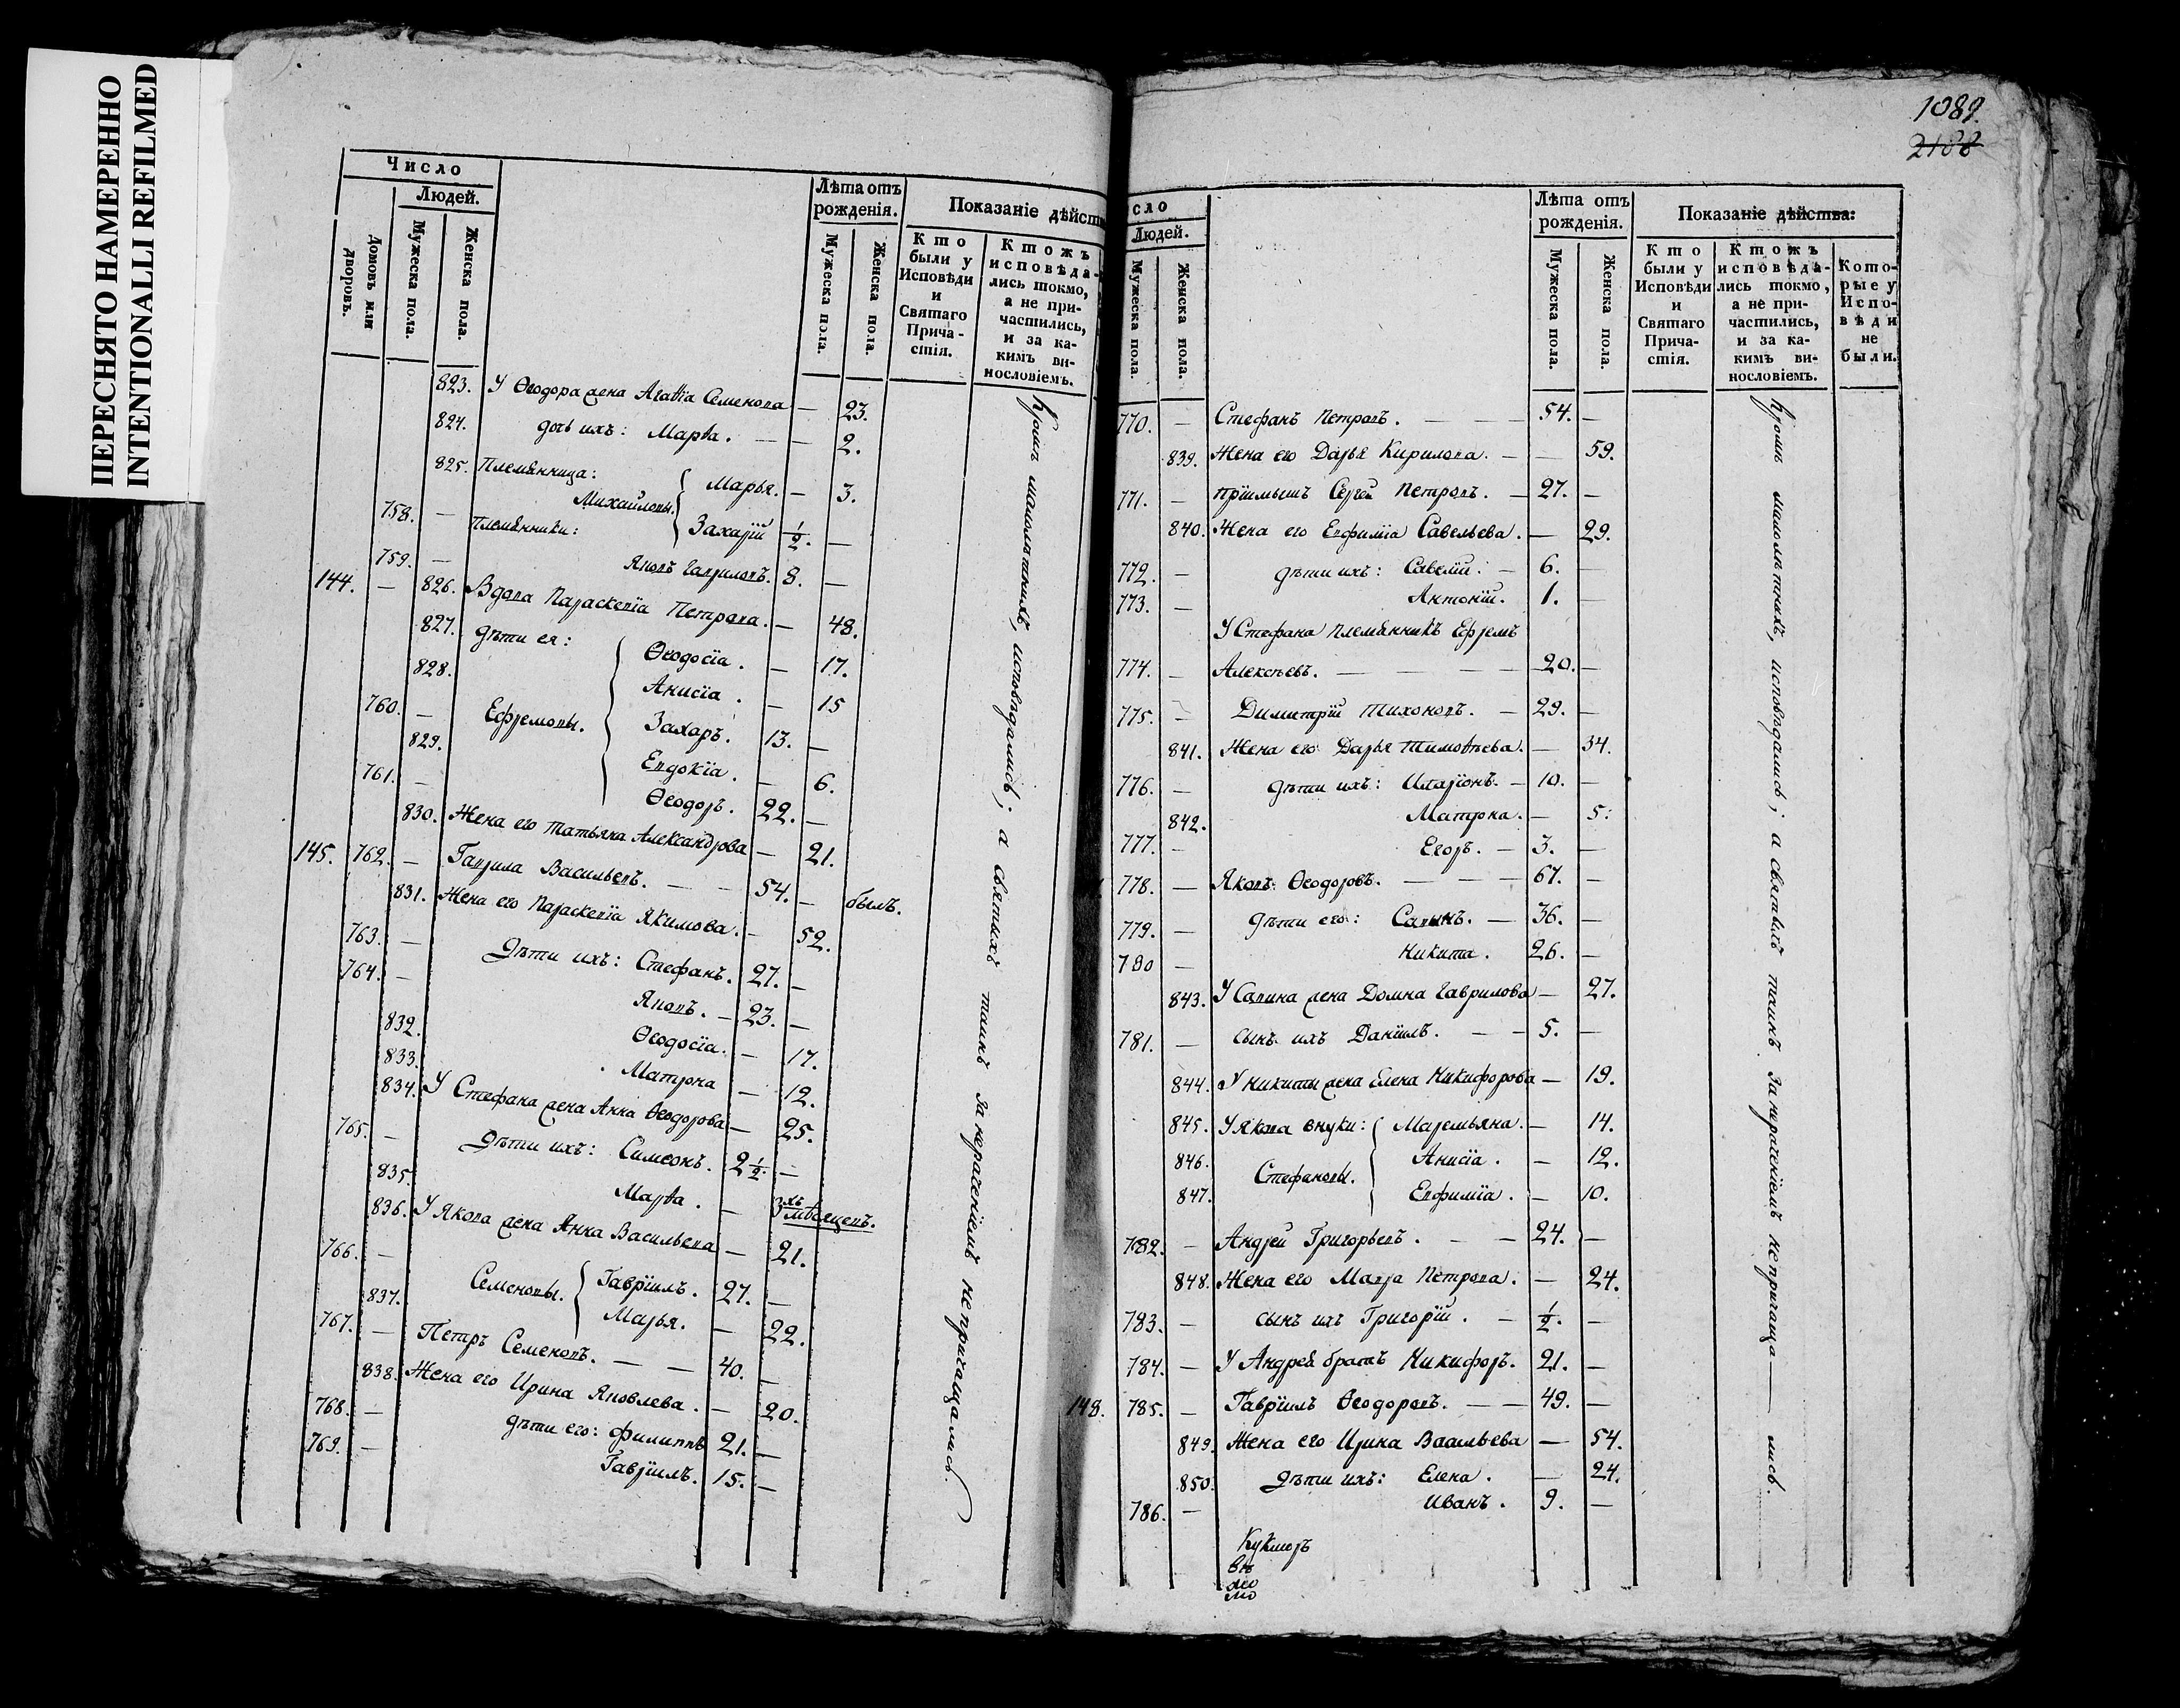 ПЕРЕСНЯТО НАМЕРЕННО
INTENTIONALLI REFILMED
Число
Людей.
Домовъ или дворовъ.
Мужеска пола.
Женска пола.
Лѣта отъ рожденія.
Мужеска пола.
Женска пола.
Показаніе дѣйств
Кто были у Исповѣди и Святаго Причастія.
Ктожъ исповѣдались токмо, а не причастились, и за какимъ винословіемъ.
823. У Ѳеодора жена Агаѳiа Семенова — 23.
824. дочь ихъ: Марѳа. — — 2.
825. Племянница: Марья. — 3.
Михайловы.
758. — Племянники: Захарiй ½. —
759. — Яковъ Гавриловъ. 8. —
144. — 826. Вдова Параскевiа Петрова. — 48.
827. Дѣти ея: Ѳеодосiа. — 17.
828. Анисiа. — 15
760. — Ефремовы. Захаръ. 13. —
829. Евдокiа. — 6.
761. — Ѳеодоръ. 22. —
830. Жена его Татьяна Александрова — 21.
145. 762. — Гаврила Васильевъ. — — 54. — былъ.
831. Жена его Параскевiа Якимова. — 52.
763. — Дѣти ихъ: Стефанъ. 27. —
764. — Яковъ. — 23. —
832. Ѳеодосiа. — 17.
833. Матрона — 12.
834. У Стефана жена Анна Ѳеодорова — 25.
765. — Дѣти ихъ: Симеонъ. 2½. —
835. Марѳа. — 3хъ мѣсяцевъ.
836. У Якова жена Анна Васильева — 21.
766. — Семеновы. Гаврiилъ. 27. —
837. Марья. — 22.
767. — Петръ Семеновъ. — — 40. —
838. Жена его Ирина Яковлева. — 20.
768. — Дѣти его: Филиппъ 21. —
769. — Гаврiилъ. 15. —
Кромѣ малолѣтнихъ, исповѣдались; а святыхъ таинъ за нераченiемъ не причащались
1089.
2188
сло
Людей.
Мужеска пола.
Женска пола.
Лѣта отъ рожденія.
Мужеска пола.
Женска пола.
Показаніе дѣйства:
Кто были у Исповѣди и Святаго Причастія.
Ктожъ исповѣдались токмо, а не причастились, и за какимъ винословіемъ.
Которые у Исповѣди не были.
770. — Стефанъ Петровъ. — — — 54. —
839. Жена его Дарья Кирилова. — — 59.
771. — Прiимышъ Сергей Петровъ. — 27. —
840. Жена его Евфимiа Савельева. — 29.
772. — Дѣти ихъ: Савелiй. — 6. —
773. — Антонiй. 1. —
У Стефана племянникъ Ефремъ
774. — Алексѣевъ. — — — 20. —
775. — Димитрiй Тихоновъ. — 29. —
841. Жена его Дарья Тимоѳеева. — 34.
776. — Дѣти ихъ: Иларiонъ. — 10. —
842. Матрона. — 5.
777. — Егоръ. — 3. —
778. — Яковъ Ѳеодоровъ. — — — 67. —
779. — Дѣти его: Савинъ. — 36. —
780 — Никита. 26. —
843. У Савина жена Домна Гаврилова — 27.
781. — сынъ ихъ Данiилъ. — — 5. —
844. У Никиты жена Елена Никифорова — 19.
845. У Якова внуки: Маремьяна. — 14.
846. Анисiа. — 12.
Стефановы.
847. Евфимiа. — 10.
782. — Андрей Григорьевъ. — — 24. —
848. Жена его Мавра Петрова. — 24.
783. — сынъ ихъ Григорiй. — ½. —
784. — У Андрея братъ Никифоръ. 21. —
148. 785. — Гаврiилъ Ѳеодоровъ. — — 49. —
849. Жена его Ирина Васильева — 54.
850. Дѣти ихъ: Елена. — 24.
786. — Иванъ. 9. —
Кромѣ малолѣтнихъ, исповѣдались; а святыхъ таинъ за нераченiемъ не причаща — лись.